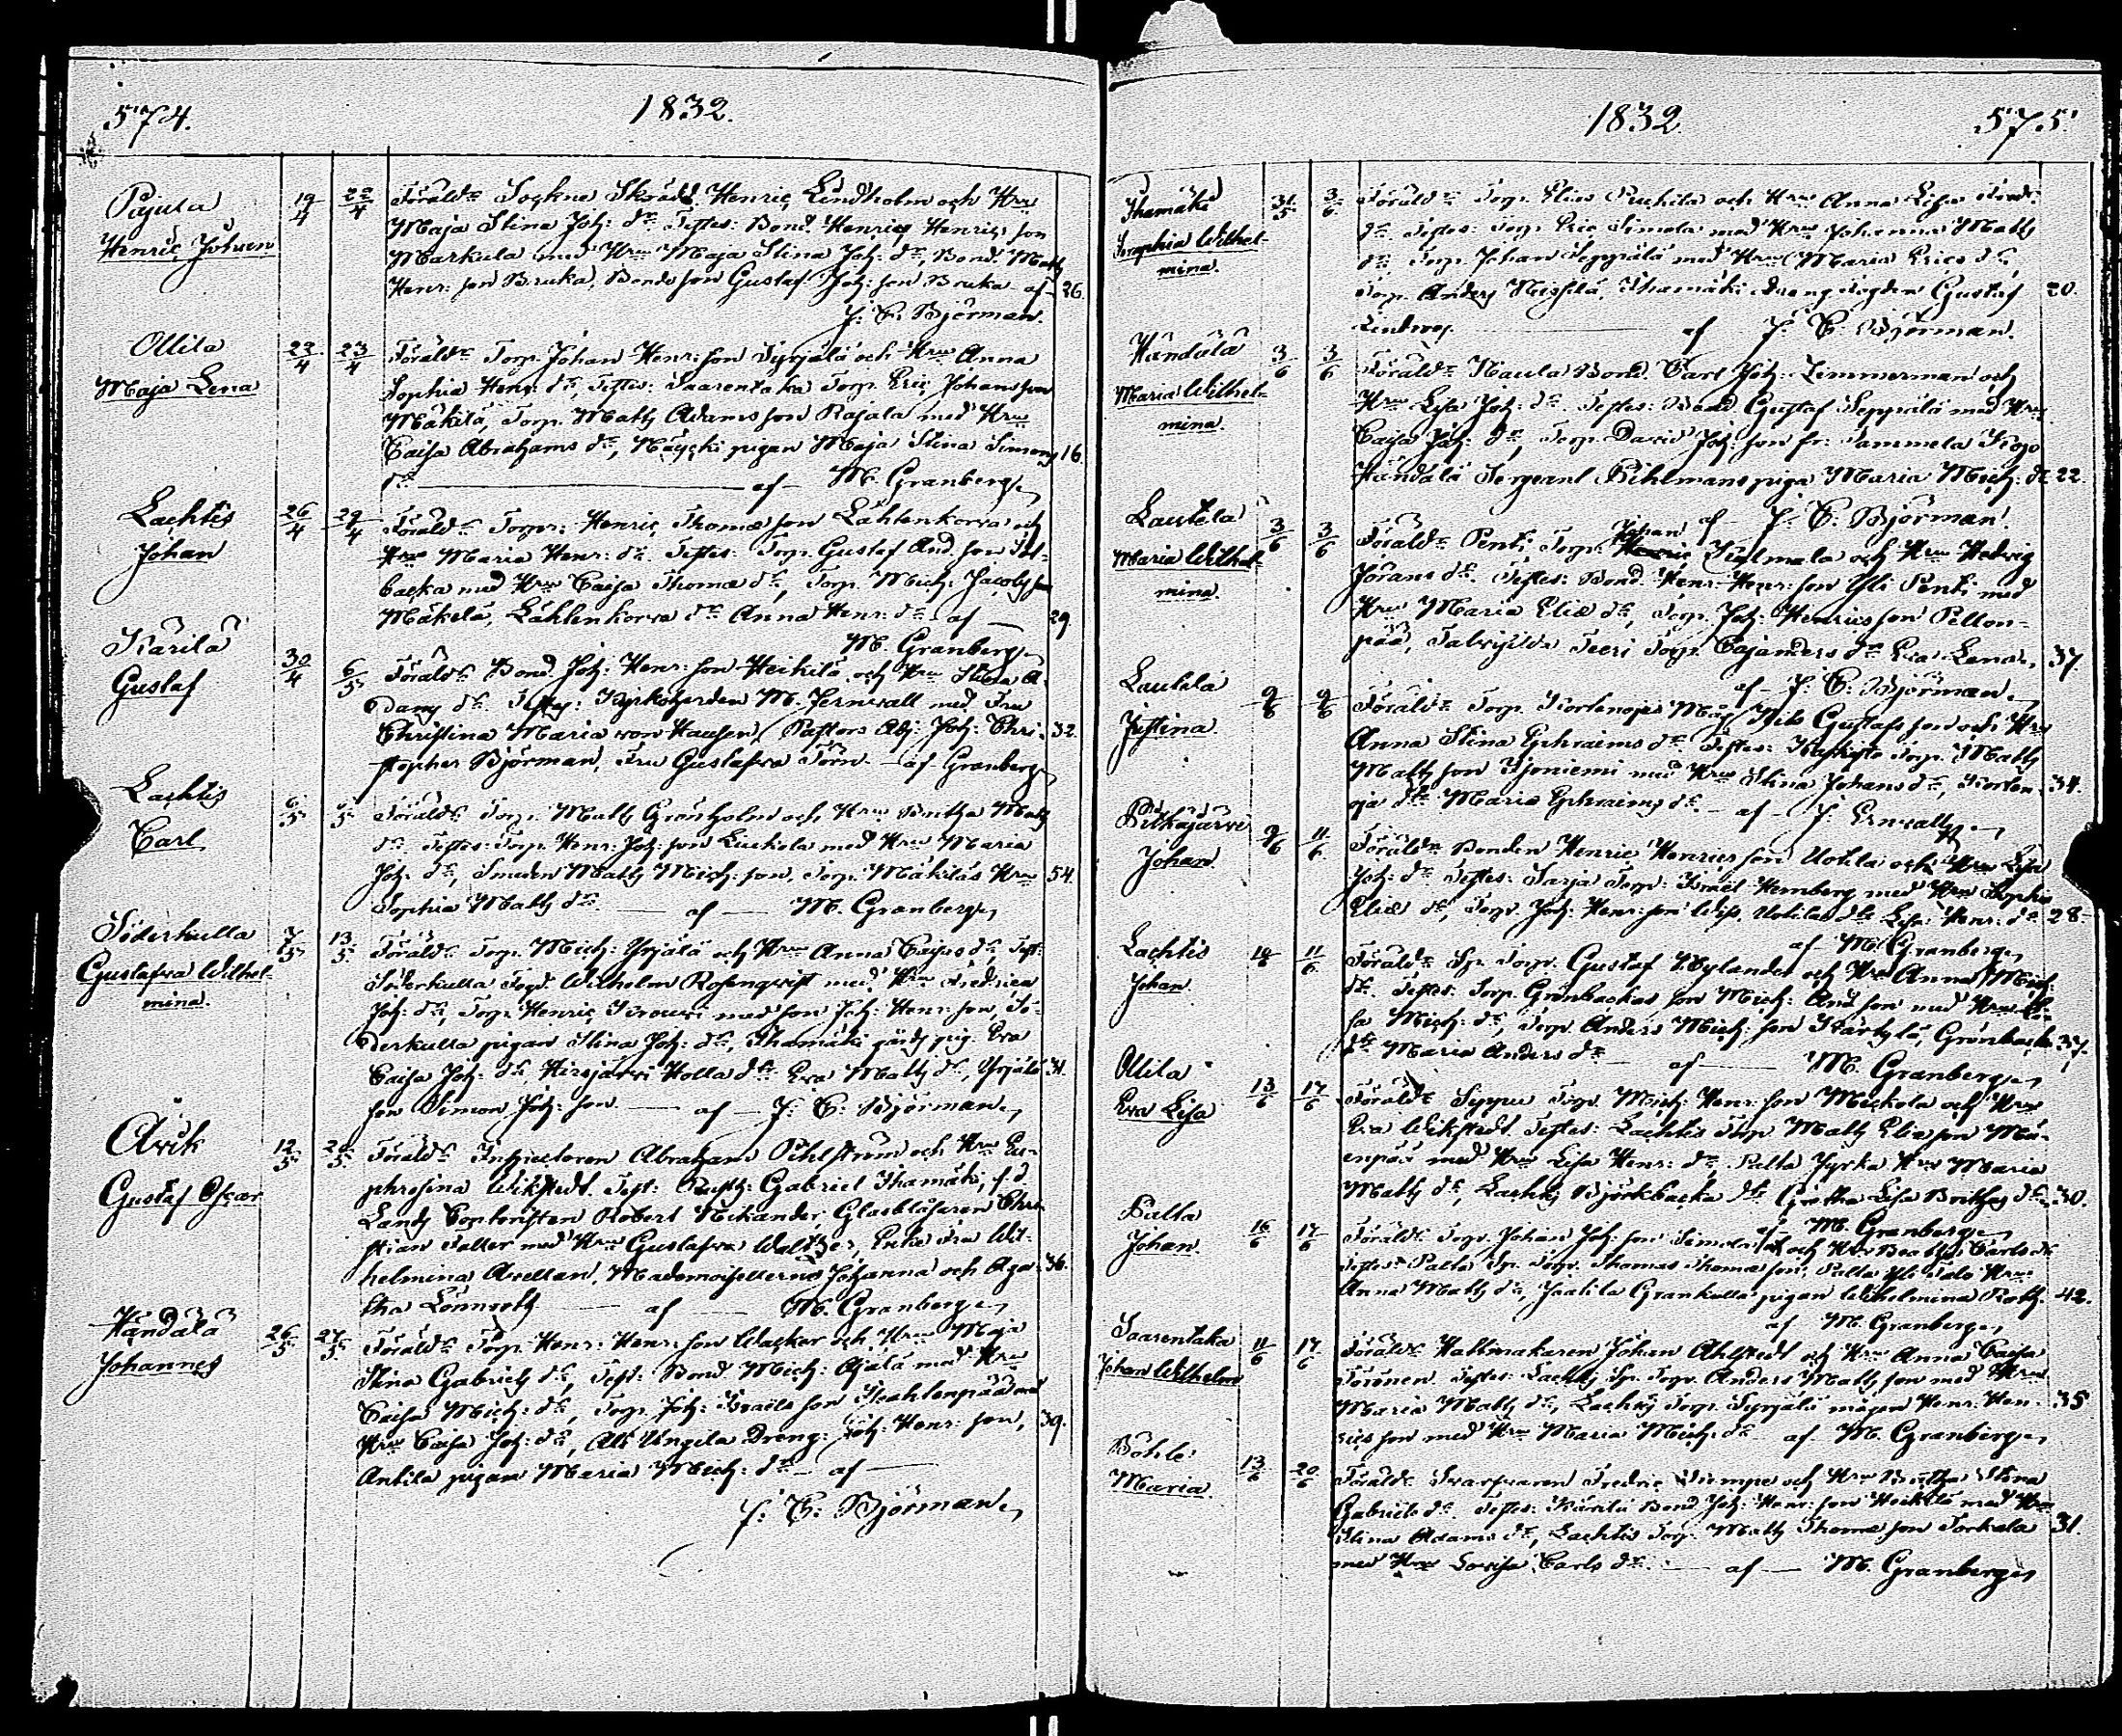 574.
1832.
Pajula
Henric Johan
19/4
22/4
Föräld: Sockne Skrädd. Henric Lindholm och Hru
Maja Stina Joh: dr. Testes: Bond. Henric Henrics son
Markula med Hru Maja Stina Joh: dr, Bond. Matts
Henr: son Bruka, Bonds son Gustaf Joh: son Bruka af
26.
J: C: Björman.
Ollila
Maja Lena
22/4
23/4
Föräld: Torp. Johan Henr: son Syrjälä och Hru Anna
Sophia Henr: dr, Testes: Saarentaka Torp. Eric Johans son
Mäkilä, Torp. Matts Adams son Rajala med Hru
Caisa Abrahams dr, pigan Maja Stina Simons
16.
dr af M. Granberg
Lachtis
Johan
26/4
29/4
Föräld: Torpr: Henric Thomæ son Lähteenkorva och
Hru Maria Henr: dr. Testes: Torp. Gustaf And. son
backa med Hru Caisa Thomæ dr, Torp. Mich: Jacobs son
Mäkelä, Lähtenkorva dr Anna Henr: dr af
29
M. Granberg
Kärilä
Gustaf
30/4
6/5
Föräld: Bond. Joh: Henr: son Heikilä och Hru Stina A-
dams dr. Testes: Kyrkoherden M. Jernvall med Fru
Christina Maria von Hausen, Pastors Adj: Joh: Chri-
32.
stopher Björman, Fru Gustafva Törn af Granberg
Lachtis
Carl
6/5
Föräld: Torp. Matts Grönholm och Hru Britha Matts
dr. Testes: Torp. Henr: Joh: son Liukola med Hru Maria
Joh: dr, Smeden Matts Mich: son, Torp. Mäkiläs Hru
54.
Sophia Matts dr. af M. Granberg
Söderkulla
Gustafva Wilhel-
mina.
7/5
13/5
Föräld: Torp. Mich: Yrjälä och Hru Anna Caisa dr, Test:
Söderkulla Torp. Wilhelm Rosenqvist med Hru Fredrica
Joh: dr, Torp. Henric med son Joh: Henr: son, Sö-
derkulla pigan Stina Joh: dr, Thamäki gårds pig. Eva
Caisa Joh: dr, Hirsjärvi Holla dr Eva Matts dr, Yrjälä
31.
son Simon Joh: son af J: C: Björman
Åvik
Gustaf Oscar
12/5
20/5
Föräld: Inspectoren Abraham Öhlström och Hru Eu-
phrosina Wikstedt. Test: Rusth: Gabriel Thamäki, f.d.
Lands Contoristen Robert Nikander, Glasblåsaren Chri-
stian Faller med Hru Gustafva Waltzer, Enke Fru Wil-
helmina Avellan, Mademoisellerne Johanna och Aga-
36.
tha Lönnroth af M. Granberg
Händälä
Johannes
26/5
27/5
Föräld: Torp. Henr: Henr: son Wacker och Hru Maja
Stina Gabriels dr, Test: Bond. Mich: Ojala med Hru
Caisa Mich: dr, Torp. Joh: Israels son med
Hru Caisa Joh: dr, Ali Ungila Dreng. Joh: Henr: son,
39.
Antila pigan Maria Mich: dr af
J: C: Björman
1832.
575.
Thamäki
Sophia Wilhel-
mina.
31/5
3/6
Föräld: Torp. Elias och Hru Anna Lisa
dr. Testes: Torp. Eric Simola med Hru Johanna Matts
dr, Torp. Johan Seppälä med Hru Maria Erics dr
Torp. Anders Nissilä, Thamäki Gustaf
20.
Lindroos af J: C: Björman.
Händälä
Maria Wilhel-
mina.
3/6
3/6
Föräld: Haula Bond. Carl Joh: Zimmerman och
Hru Lisa Joh: dr. Testes: Bond Gustaf Seppälä med Hru
Caisa Joh: dr, Torp. David Joh: son fr: Tammela
Händälä Sergeant Bihlmans piga Maria Mich: dr
22.
af J: C: Björman.
Lautela
Maria Wilhel-
mina.
3/6
3/6
Föräld: Penti Torp. Johan och Hru Hedvig
Jörans dr. Testes: Bond. Henr: Henr: son Yli Penti med
Hru Maria Eliæ dr, Torp. Joh: Henrics son Pellon-
pää, Teeri Torp. Cajanders dr Eva Lena
37.
af J: C: Björman
Lautela
Justina.
9/6
9/6
Föräld: Torp. Kortenoja Måg Nils Gustafs son och Hru
Anna Stina Ephraims dr. Testes: Torp. Matts
Matts son Isoniemi med Hru Stina Johans dr, Korten-
34.
oja dr Maria Ephraims dr af J. Ernvall
Pitkäjärvi
Johan
9/6
11/6
Föräld: Bonden Henric Henrics son Uotila och Hru Lisa
Joh: dr. Testes: Sarja Torp: Israel Hemberg med Hru Sophia
Eliæ dr, Torp. Joh: Henr: son Uotila dr Lisa Henr: dr
28
af M. Granberg
Lachtis
Johan
10/6
11/6
Föräld: Sp: Torp. Gustaf Nylander och Hru Anna Mich:
dr. Testes: Torp. Grönbackas son Mich: And: son med Hru
sa Mich: dr, Torp. Anders Mich: son Kärkylä, Grönbacka
37.
dr Maria Anders dr af M. Granberg
Ollila
Eva Lisa
13/6
17/6
Föräld: Torp. Mich: Henr: son Mickola och Hru
Eva Wikstedt. Testes: Lachtis Torp. Matts Eliæ son Mä-
enpää med Hru Lisa Henr: dr, Palta Jyrka Hru Maria
Matts dr, Lachtis Björkbacka dr Greta Lisa Britha dr
30.
af M. Granberg
Palta
Johan
16/6
17/6
Föräld: Torp. Johan Joh: son Simola och Hru Beata Carls dr
Testes: Palta Sp: Torp. Thomas Thomæ son, Palta Yli Talo Hru
Anna Matts dr, Grankulla pigan Wilhelmina Roth.
42.
af M. Granberg
Saarentaka
Johan Wilhelm
11/6
17/6
Föräld: Hattmakaren Johan Ahlstedt och Hru Anna Caisa
Törönen. Testes: Lachtis Sp: Torp. Anders Matts son med Hru
Maria Matts dr, Lachtis Torp. Syrjälä mågen Henr: Hen-
35
rics son med Hru Maria Mich: dr af M. Granberg
Böhle
Maria.
13/6
20/6
Föräld: Svarfvaren Fredric och Hru Britha Stina
Gabriels dr. Testes: Kärilä Bond Joh: Henr: son Heikilä med Hru
Stina Adams dr, Lachtis Torp. Matts Thomæ son Torkala
31.
med Hru Lovisa Carls dr. af M. Granberg